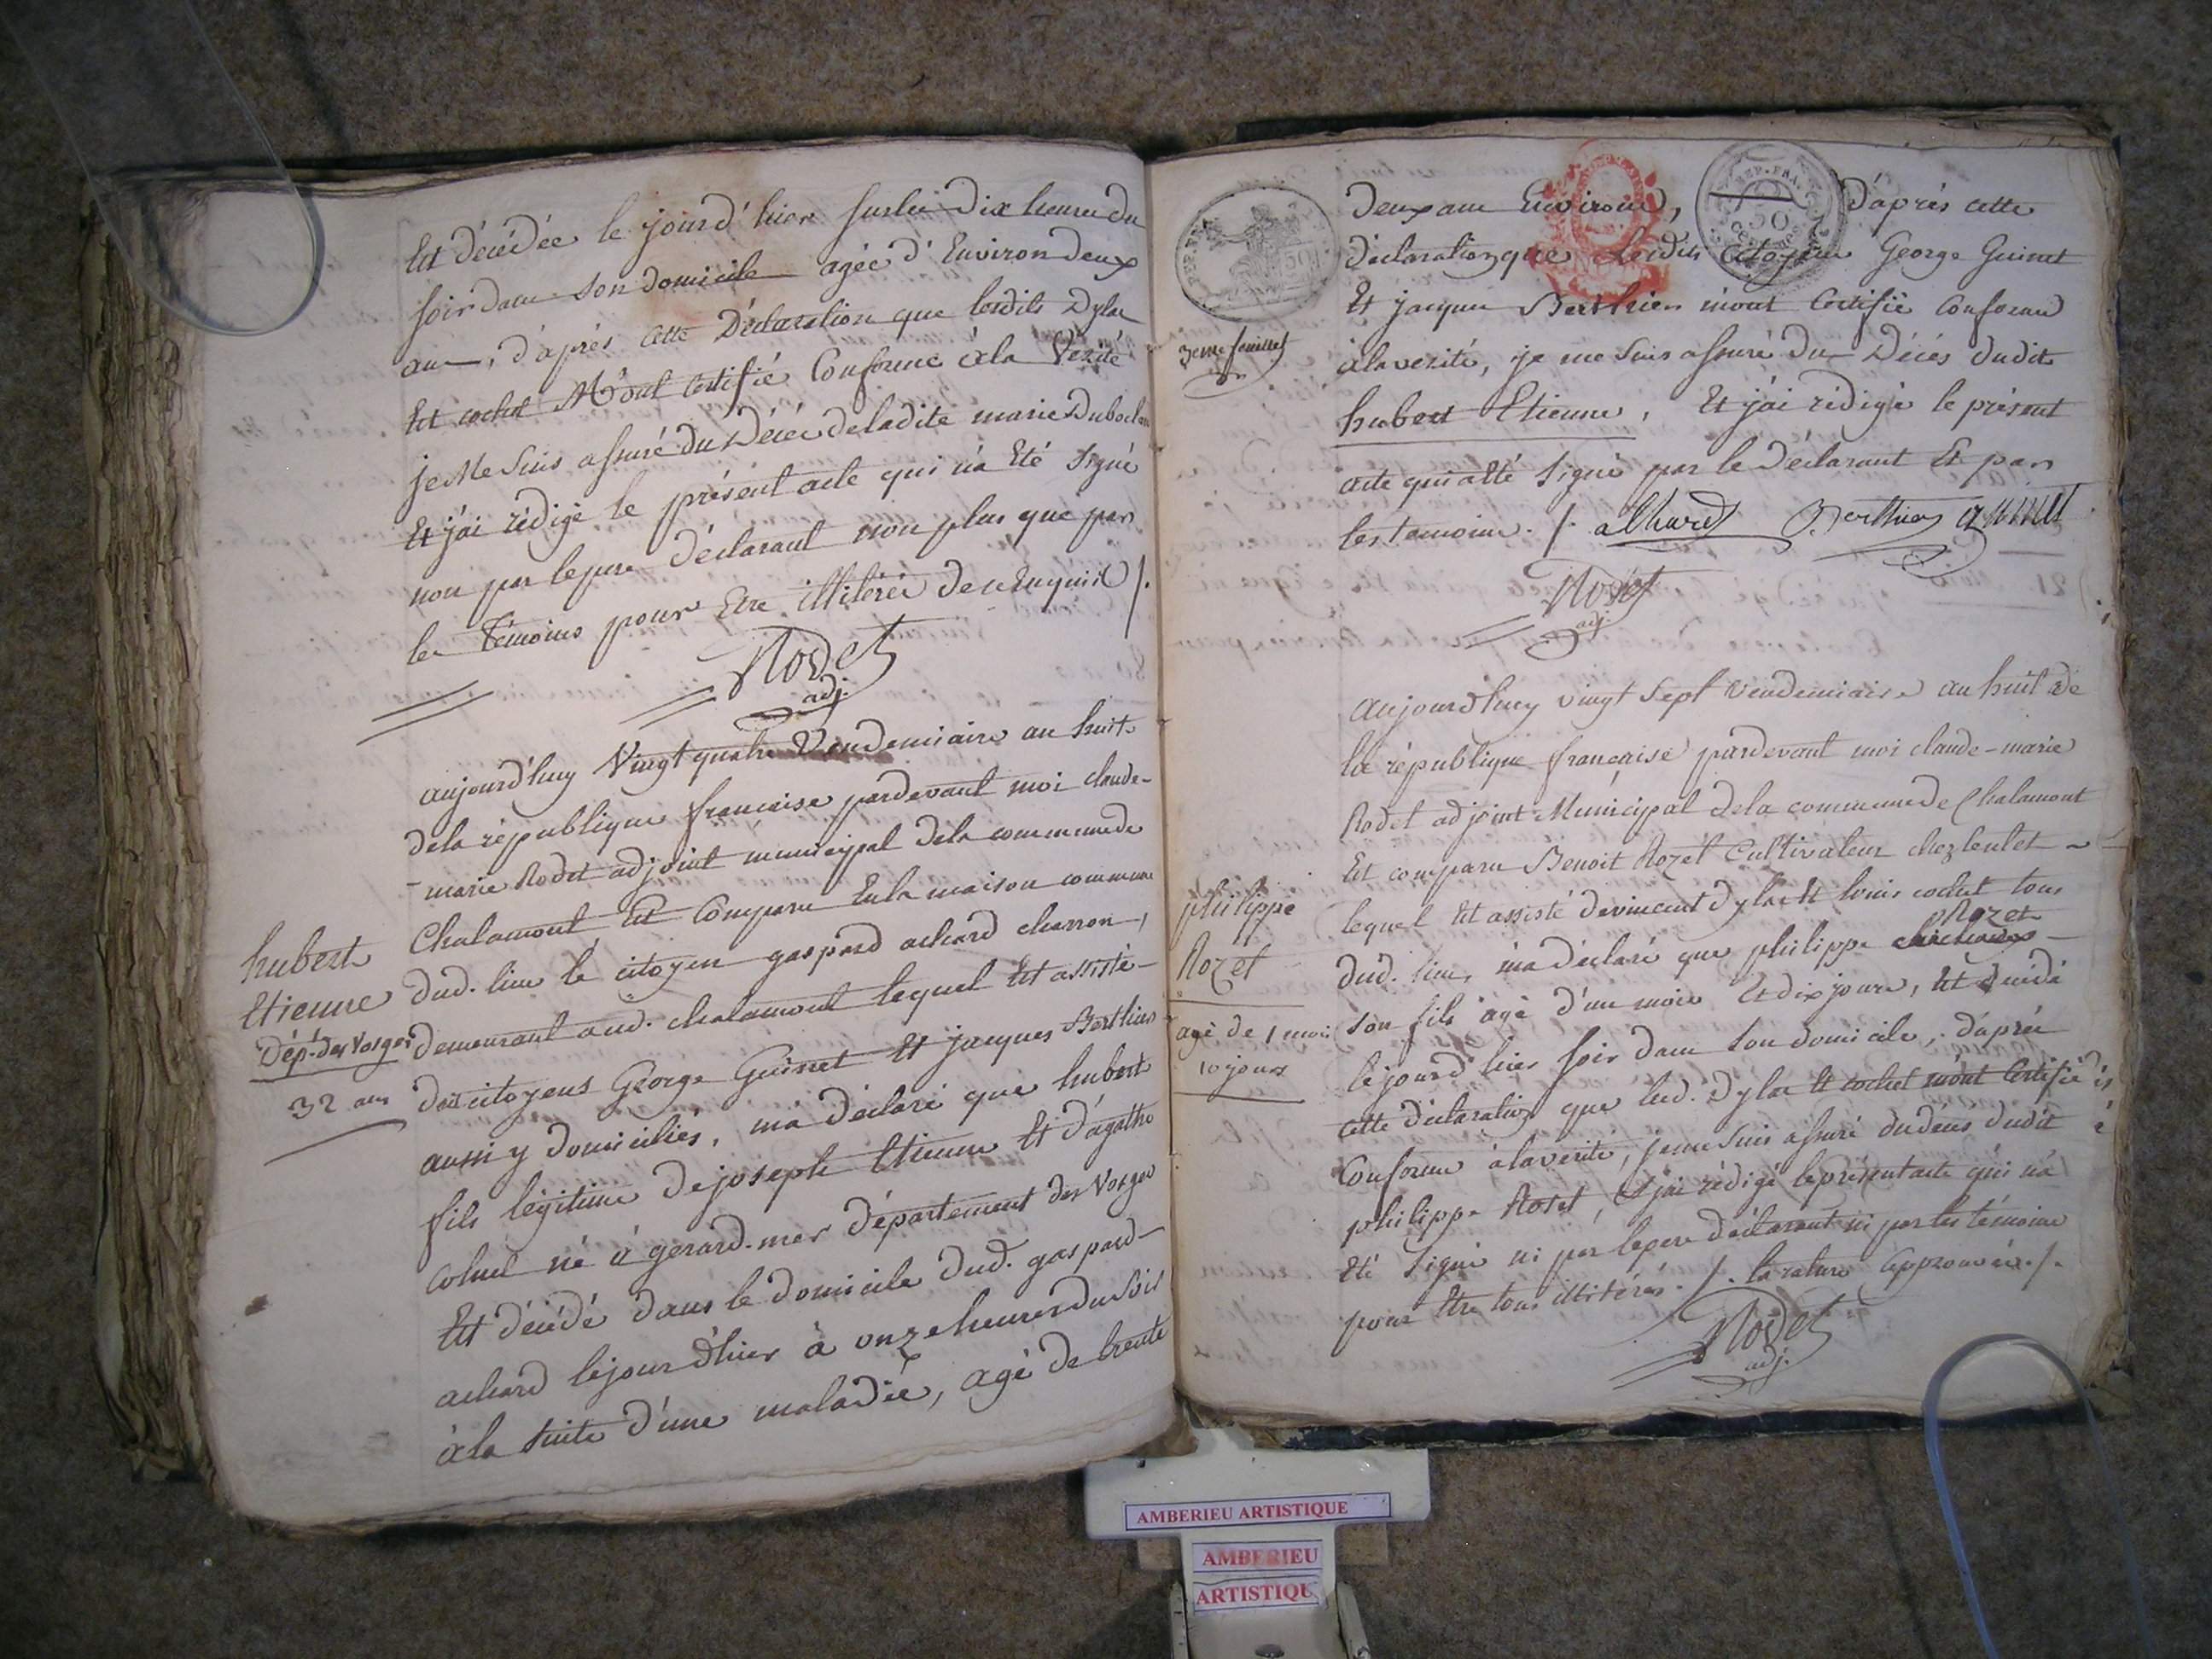 Est décédée le jour d'hier sur les dix heures du
soir dans son domicile agée d'Environ deux
ans, d'après cette Déclaration que lesdits Dylae
Et cochet M'ont Certifié Conforme à la Vérité
je Me suis assuré du Décès de ladite marie Dubochon
Et j'ai rédigé le présent acte qui n'a Eté Signé
non par le pere déclarant non plus que par
les Témoins pour Etre illitérés de ce Enquis /.
Rodet
adj.
aujourd'huy Vingt quatre Vendemiaire an huit
de la république francaise pardevant moi claude-
-marie Rodet adjoint municipal de la commune de
Chalamont Est Comparu En la maison commune
dud. lieu le citoyen gaspard achard charron,
demeurant aud. chalamont lequel Est assisté
des citoyens George Guinet Et jacques Berthier
aussi y domiciliés, m'a déclaré que hubert
fils légitime de joseph Etienne Et d'agathe
Colnel né à gerard-mer département des Vosges
Est décédé dans le domicile dud. gaspard-
achard le jour d'hier à onze heures du soir
à la suite d'une maladie, agé de trente
hubert
Etienne
Dép.t des Vosges
32 ans
REP. FRA.
50
3eme feuillet
REP. FRA.
50
CENT
deux ans Environ, d'après cette
déclaration que Lesdits Citoyens George Guinet
Et jacques Berthier m'ont Certifié conforme
à la verité, je me suis assuré du Décès dudit
hubert Etienne, Et j'ai rédigé le présent
acte qui a Eté Signé par le Déclarant Et par
les temoins. /. aChard J. Berthier guinet
Rodet
adj.
aujourd'huy vingt sept vendemiaire an huit de
la république française pardevant moi claude-marie
Rodet adjoint Municipal de la commune de Chalamont
Est comparu Benoit Rozet Cultivateur chez leulet
lequel Est assisté de vincent Dylae Et louis cochet tous
Rozet
dud. lieu, m'a déclaré que philippe
son fils agé d'un mois Et dix jours, Est décédé
le jour d'hier soir dans son domicile, d'après
cette déclaration que lesd. Dylae Et cochet m'ont Certifié
Conforme à la verité, je me suis assuré du décès dudit
philippe Rozet, Et j'ai rédigé le présent acte qui n'a
Eté Signé ni par le pere déclarant ni par les témoins
pour Etre tous illitérés. /. la rature approuvée. /.
Rodet
adj.
philippe
Rozet
agé de 1 mois
10 jours
AMBERIEU ARTISTIQUE
AMBERIEU
ARTISTIQU